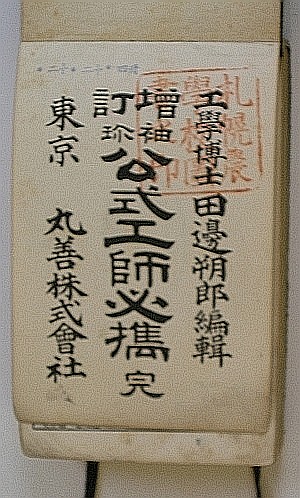 工學博士田邊朔郎編輯
增訂
袖珍
公式工師必携 完
東京 丸善株式會社
札幌農
學校